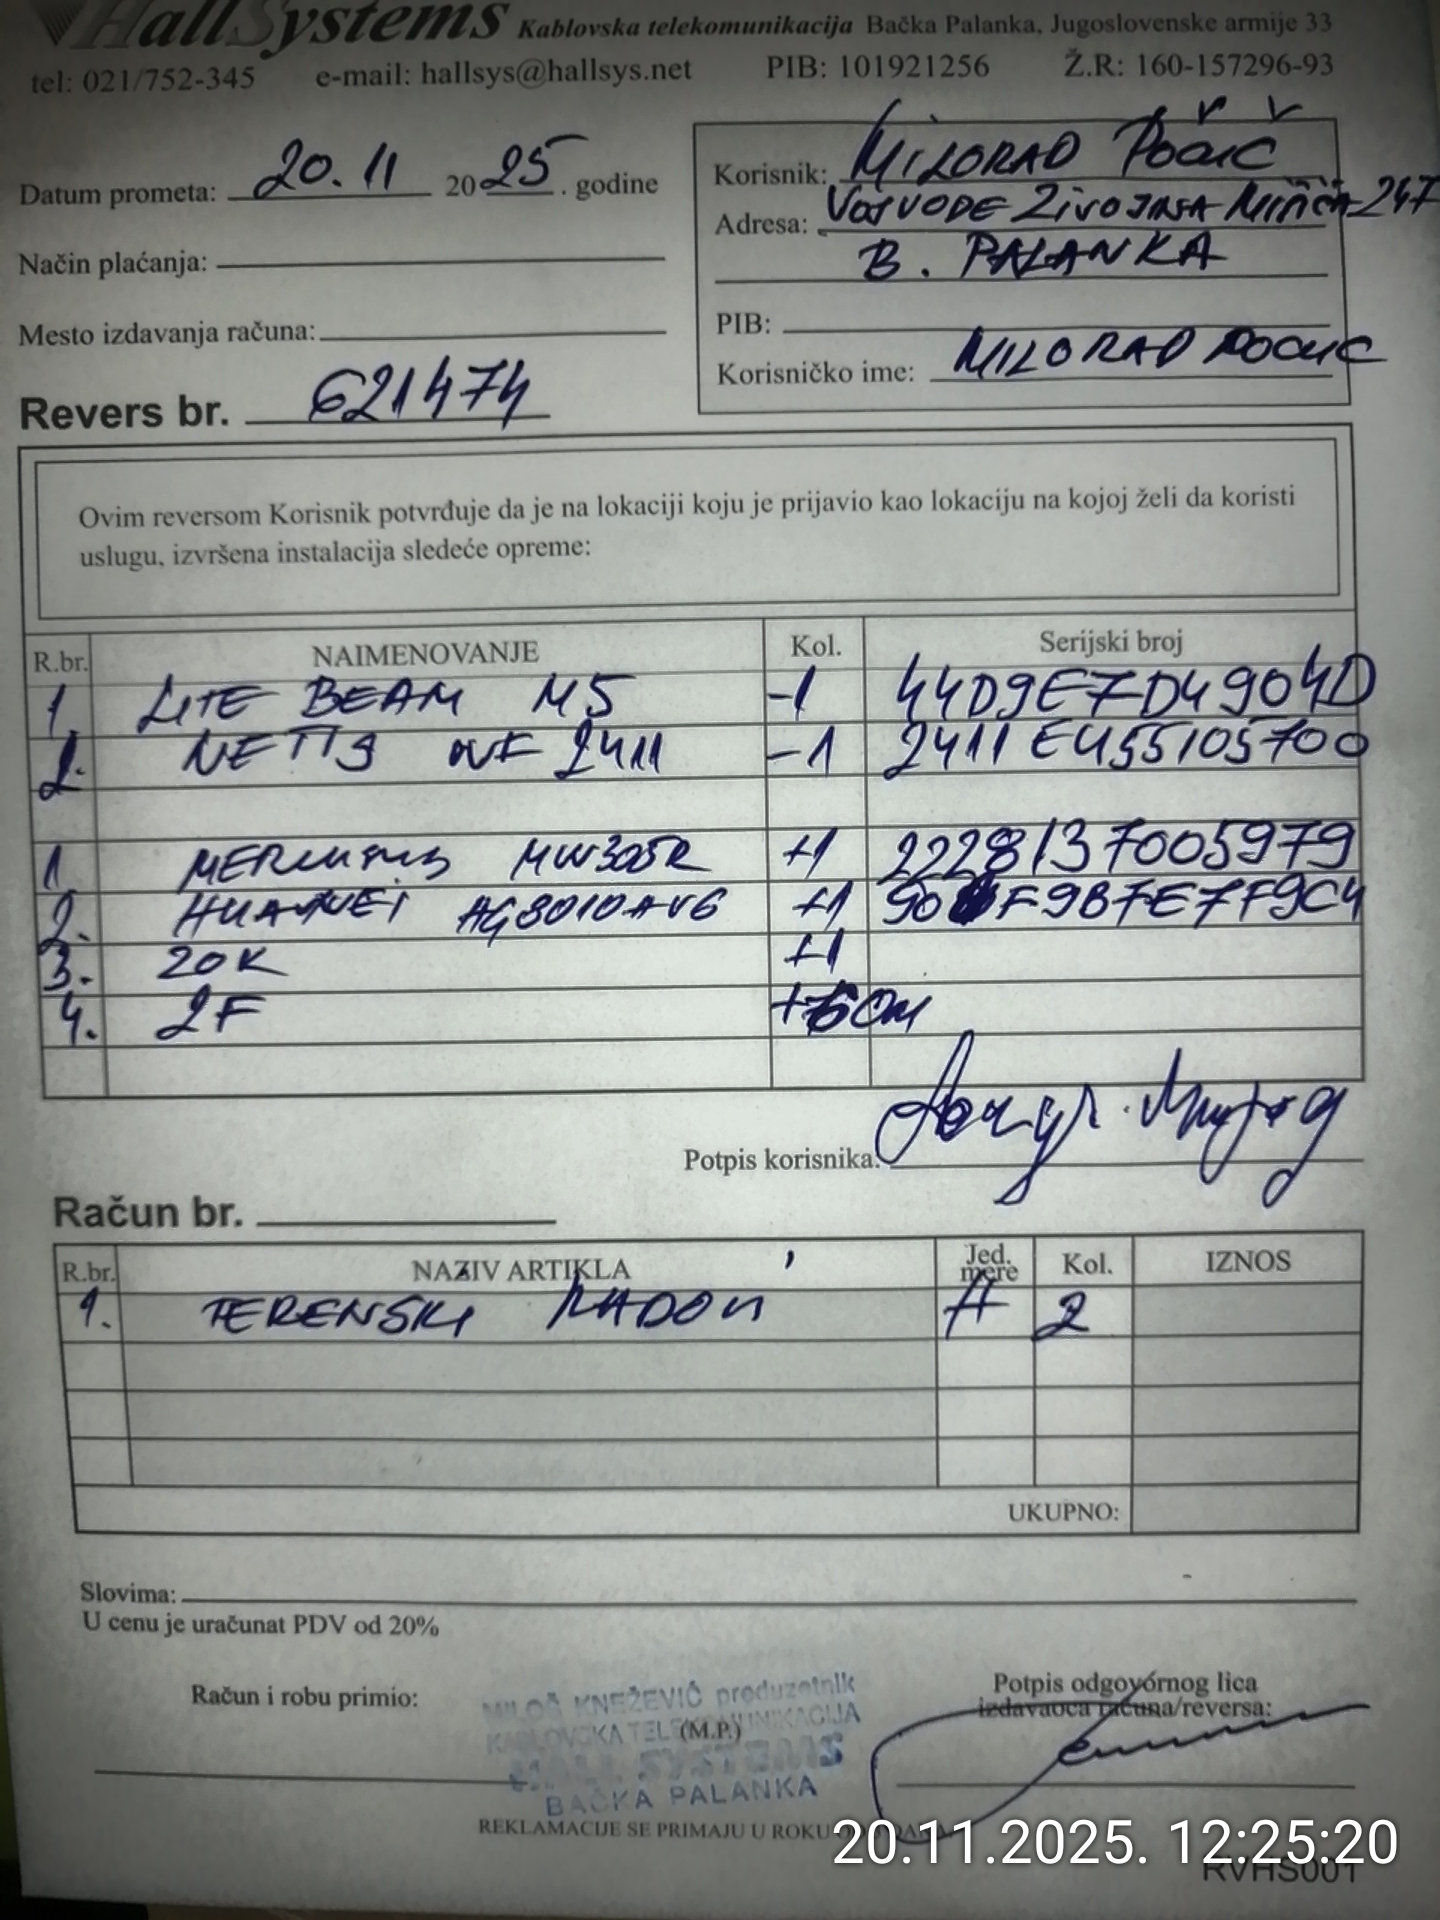 HallSystems Kablovska telekomunikacija Bačka Palanka, Jugoslovenske armije 33
tel: 021/752-345 e-mail: hallsys@hallsys.net PIB: 101921256 Ž.R: 160-157296-93
Datum prometa: 20.11 2025. godine
Način plaćanja:
Mesto izdavanja računa:
Revers br. 621474
Korisnik: MILORAD POČUČ
Adresa: VOJVODE ŽIVOJINA MIŠIĆA 247
B. PALANKA
PIB:
Korisničko ime: MILORAD POCUC
Ovim reversom Korisnik potvrđuje da je na lokaciji koju je prijavio kao lokaciju na kojoj želi da koristi
uslugu, izvršena instalacija sledeće opreme:
R.br. NAIMENOVANJE Kol. Serijski broj
1. LITE BEAM M5 -1 44D9E7D4904D
2. NETIS WF 2411 -1 2411EU55105700
1 MERCUSYS MW305R +1 2228137005979
2. HUAWEI HG8010HV6 +1 90F9B7E7F9C4
3. ZOK +1
4. 2F +60m
Potpis korisnika:
Račun br.
R.br. NAZIV ARTIKLA Jed. mere Kol. IZNOS
1. TERENSKI RADOVI H 2
UKUPNO:
Slovima:
U cenu je uračunat PDV od 20%
Račun i robu primio:
MILOŠ KNEŽEVIĆ preduzetnik
KABLOVSKA TELEKOMUNIKACIJA
(M.P.)
HALL SYSTEMS
BAČKA PALANKA
Potpis odgovornog lica
izdavaoca računa/reversa:
REKLAMACIJE SE PRIMAJU U ROKU
20.11.2025. 12:25:20
RVHS001